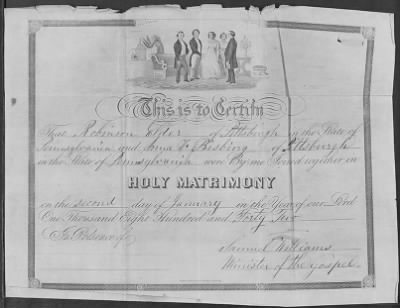 This is to Certify
That Robinson Tyler of Pittsburgh in the State of
Pennsylvania and Anna of Pittsburgh
in the State of Pennsylvania were By me Joined together in
HOLY MATRIMONY
on the second day of January in the Year of our Lord
One Thousand Eight Hundred and Forty Two
In Presence of
Samuel Williams
Minister of the Gospel